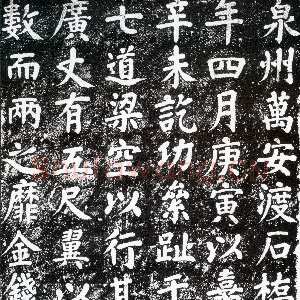 泉州萬安渡石橋
年四月庚寅以嘉
辛未訖功絫趾于
七道梁空以行其
廣丈有五尺翼以
數而兩之靡金錢